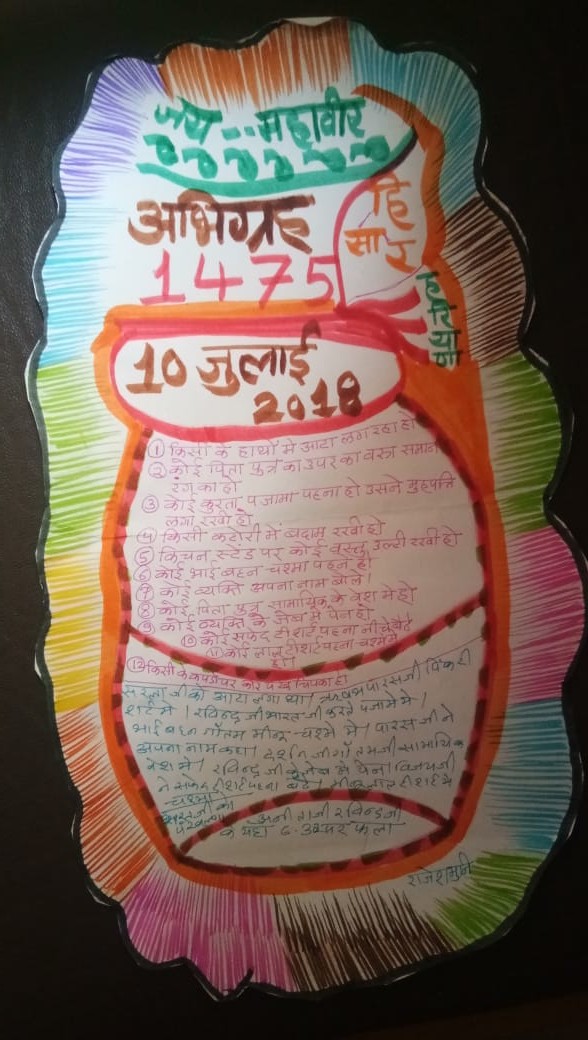 जय - - महावीर
अभिग्रह
1475
हि
सा र
हरियाणा
10 जुलाई
2018
① किसी के हाथों में आटा लग रहा हो
② कोई पिता पुत्र का उपर का वस्त्र समान
रंग का हो
③ कोई कुरता पजामा पहना हो उसने मुहपत्ति
लगा रखी हो
④ किसी कटोरी में बदाम रखी हो
⑤ किचन स्टेंड पर कोई वस्तु उल्टी रखी हो
⑥ कोई भाई बहन चश्मा पहने हो
⑦ कोई व्यक्ति अपना नाम बोले।
⑧ कोई पिता पुत्र सामायिक के वेश में हो
⑨ कोई व्यक्ति के जेब में पेन हो
⑩ कोई सफेद टीशर्ट पहना नीचे बैठे
⑪ कोई लाल टीशर्ट पहना चश्मे मे
हो।
⑫ किसी के कपडो पर कोई पंख चिपका हो
सरला जी को आटा लगा था। ऋषभ पारस जी पिंक री
शर्ट मे। रविन्द्र जी भारत जी कुरते पजामे मे।
भाई बहन गौतम मीनू चश्मे मे। पारस जी ने
अपना नाम कहा। दर्शन जी गौतम जी सामायिक
वेश मे। रविन्द्र जी के जेब मे पेन। विजय जी
ने सफेद टीशर्ट पहना बैठे। लाल टीशर्ट मे
चश्मा
पंख लगा। अनीता जी रविन्द्र जी
के यहाँ 6.39 पर फला
राजेशमुनि